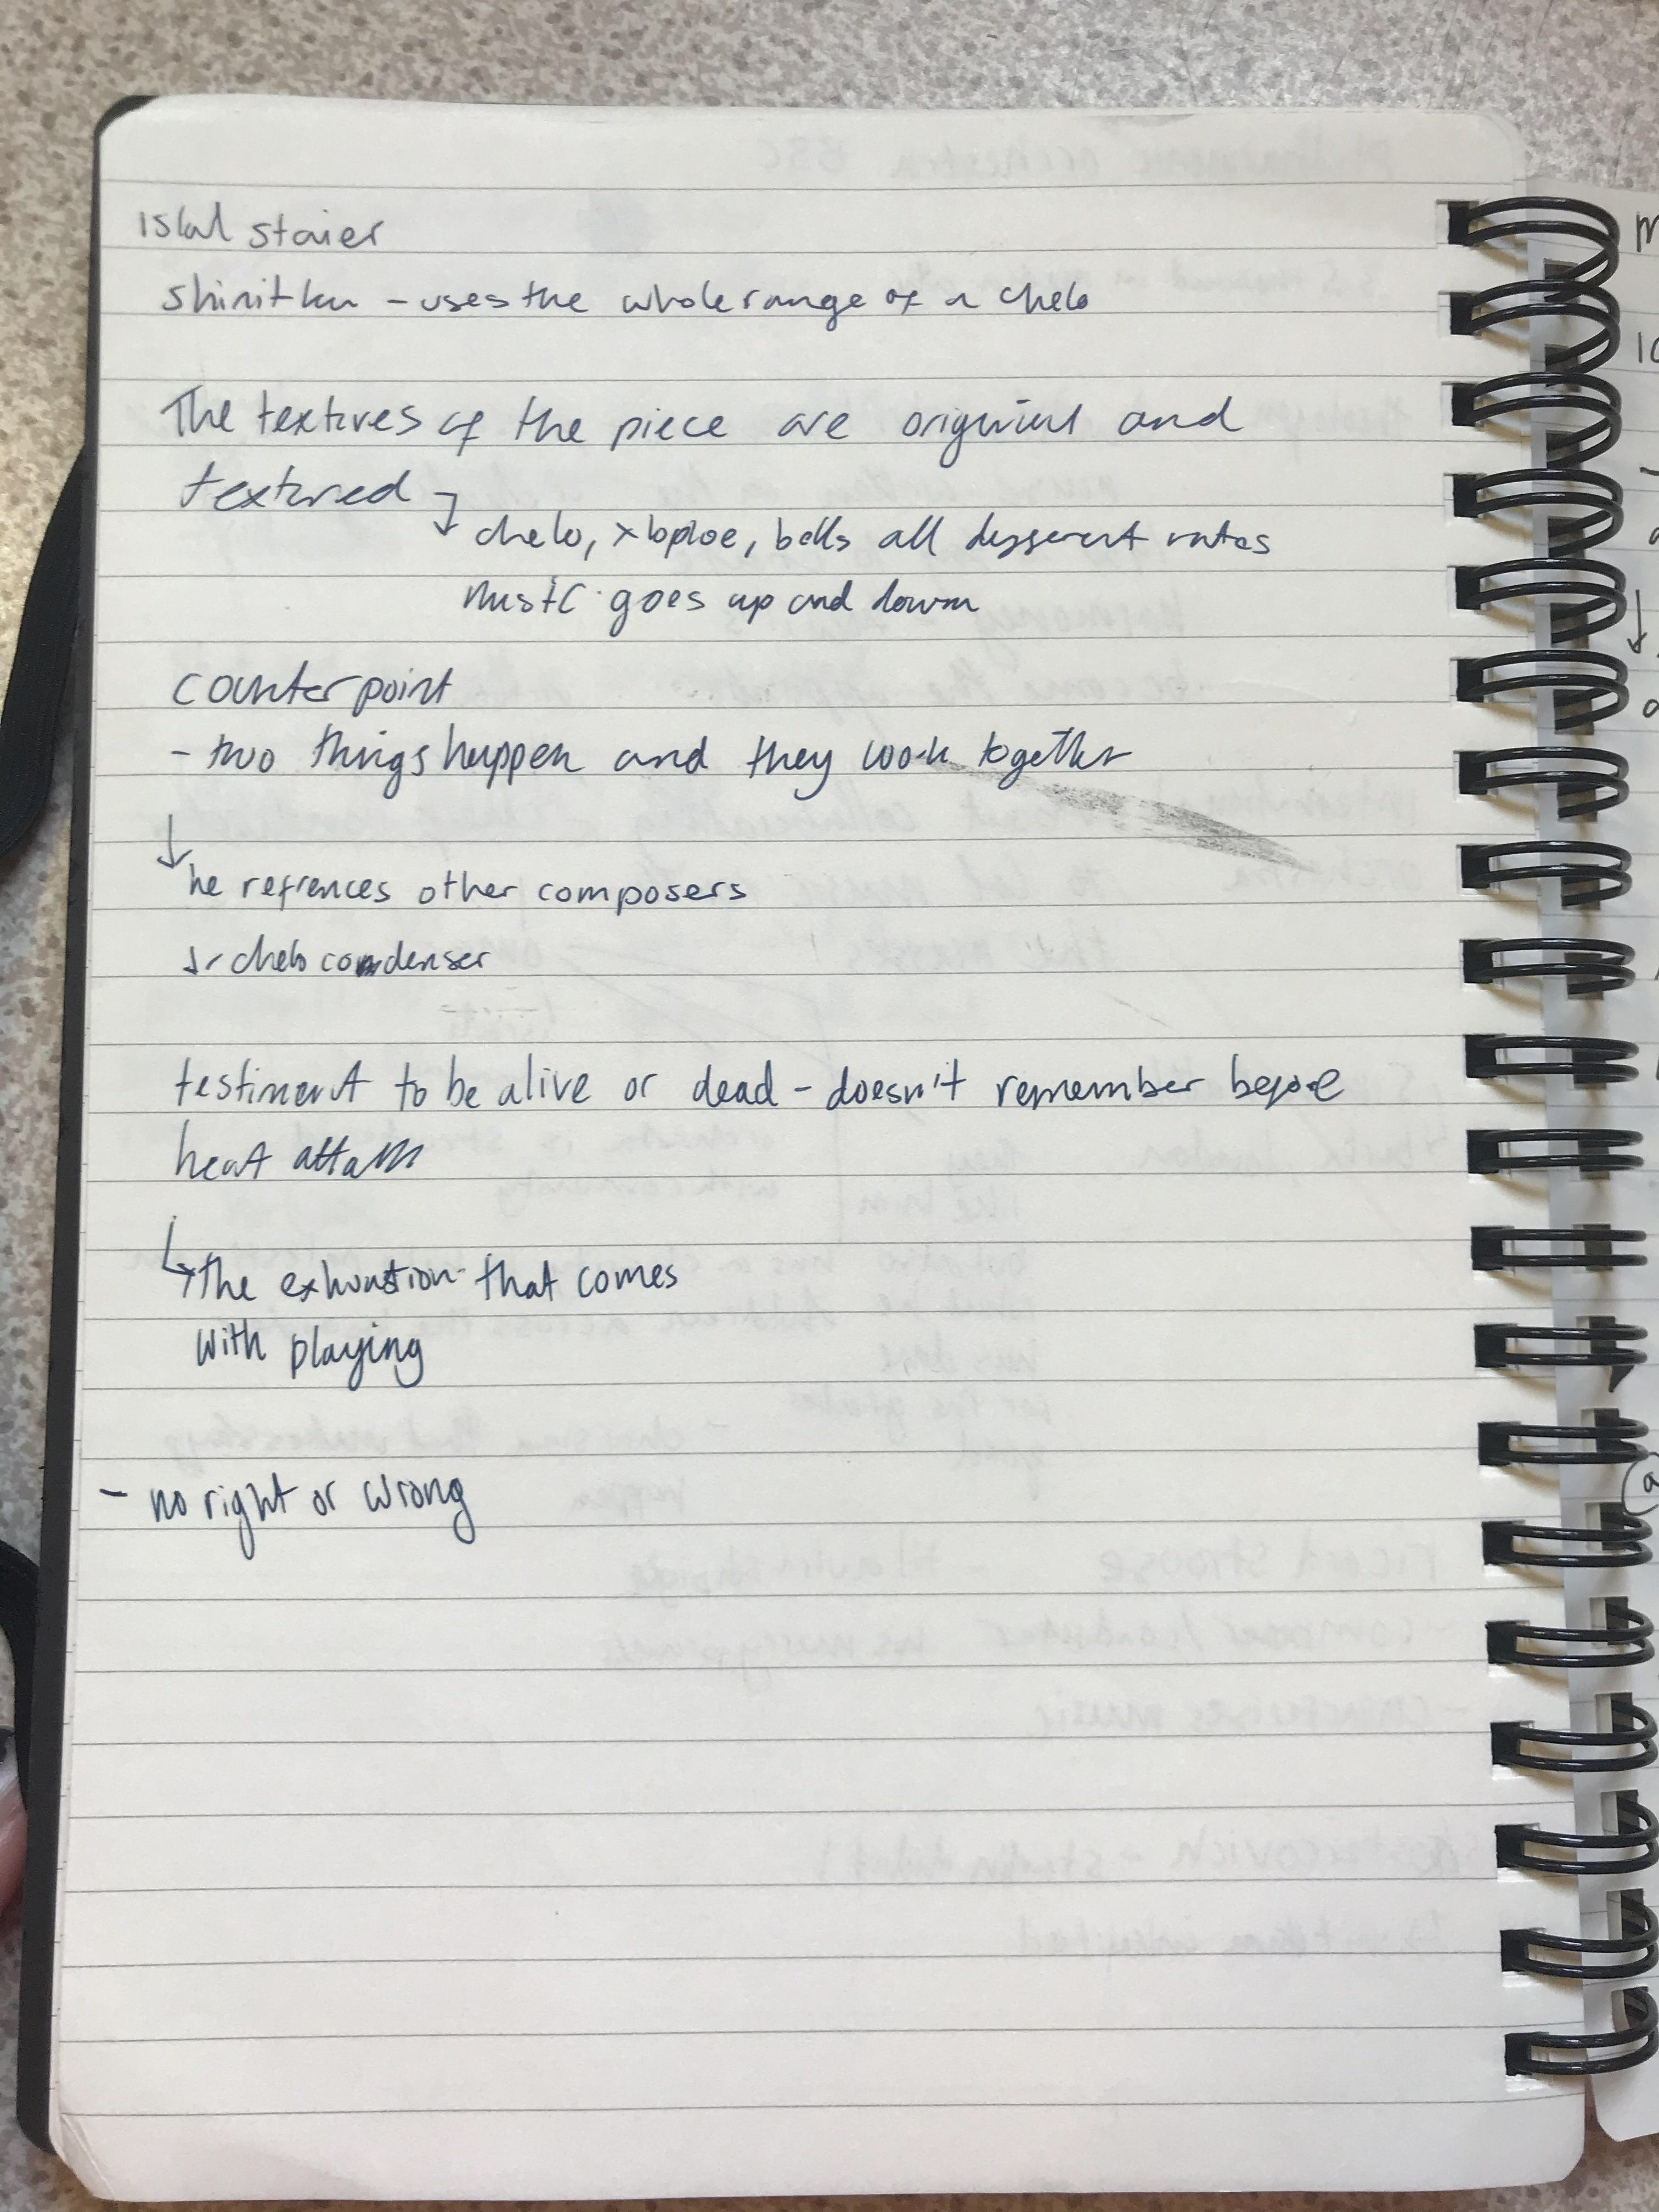 stoier
- uses the whole range of a chelo
The textures of the piece are and
textured
chelo, bells all different rates
music goes up and down
counterpoint
- two things happen and they work together
he refrences other composers
chelo condenser
testiment to be alive or dead - doesn't remember before
heat attack
the exhuastion that comes
with playing
- no right or wrong